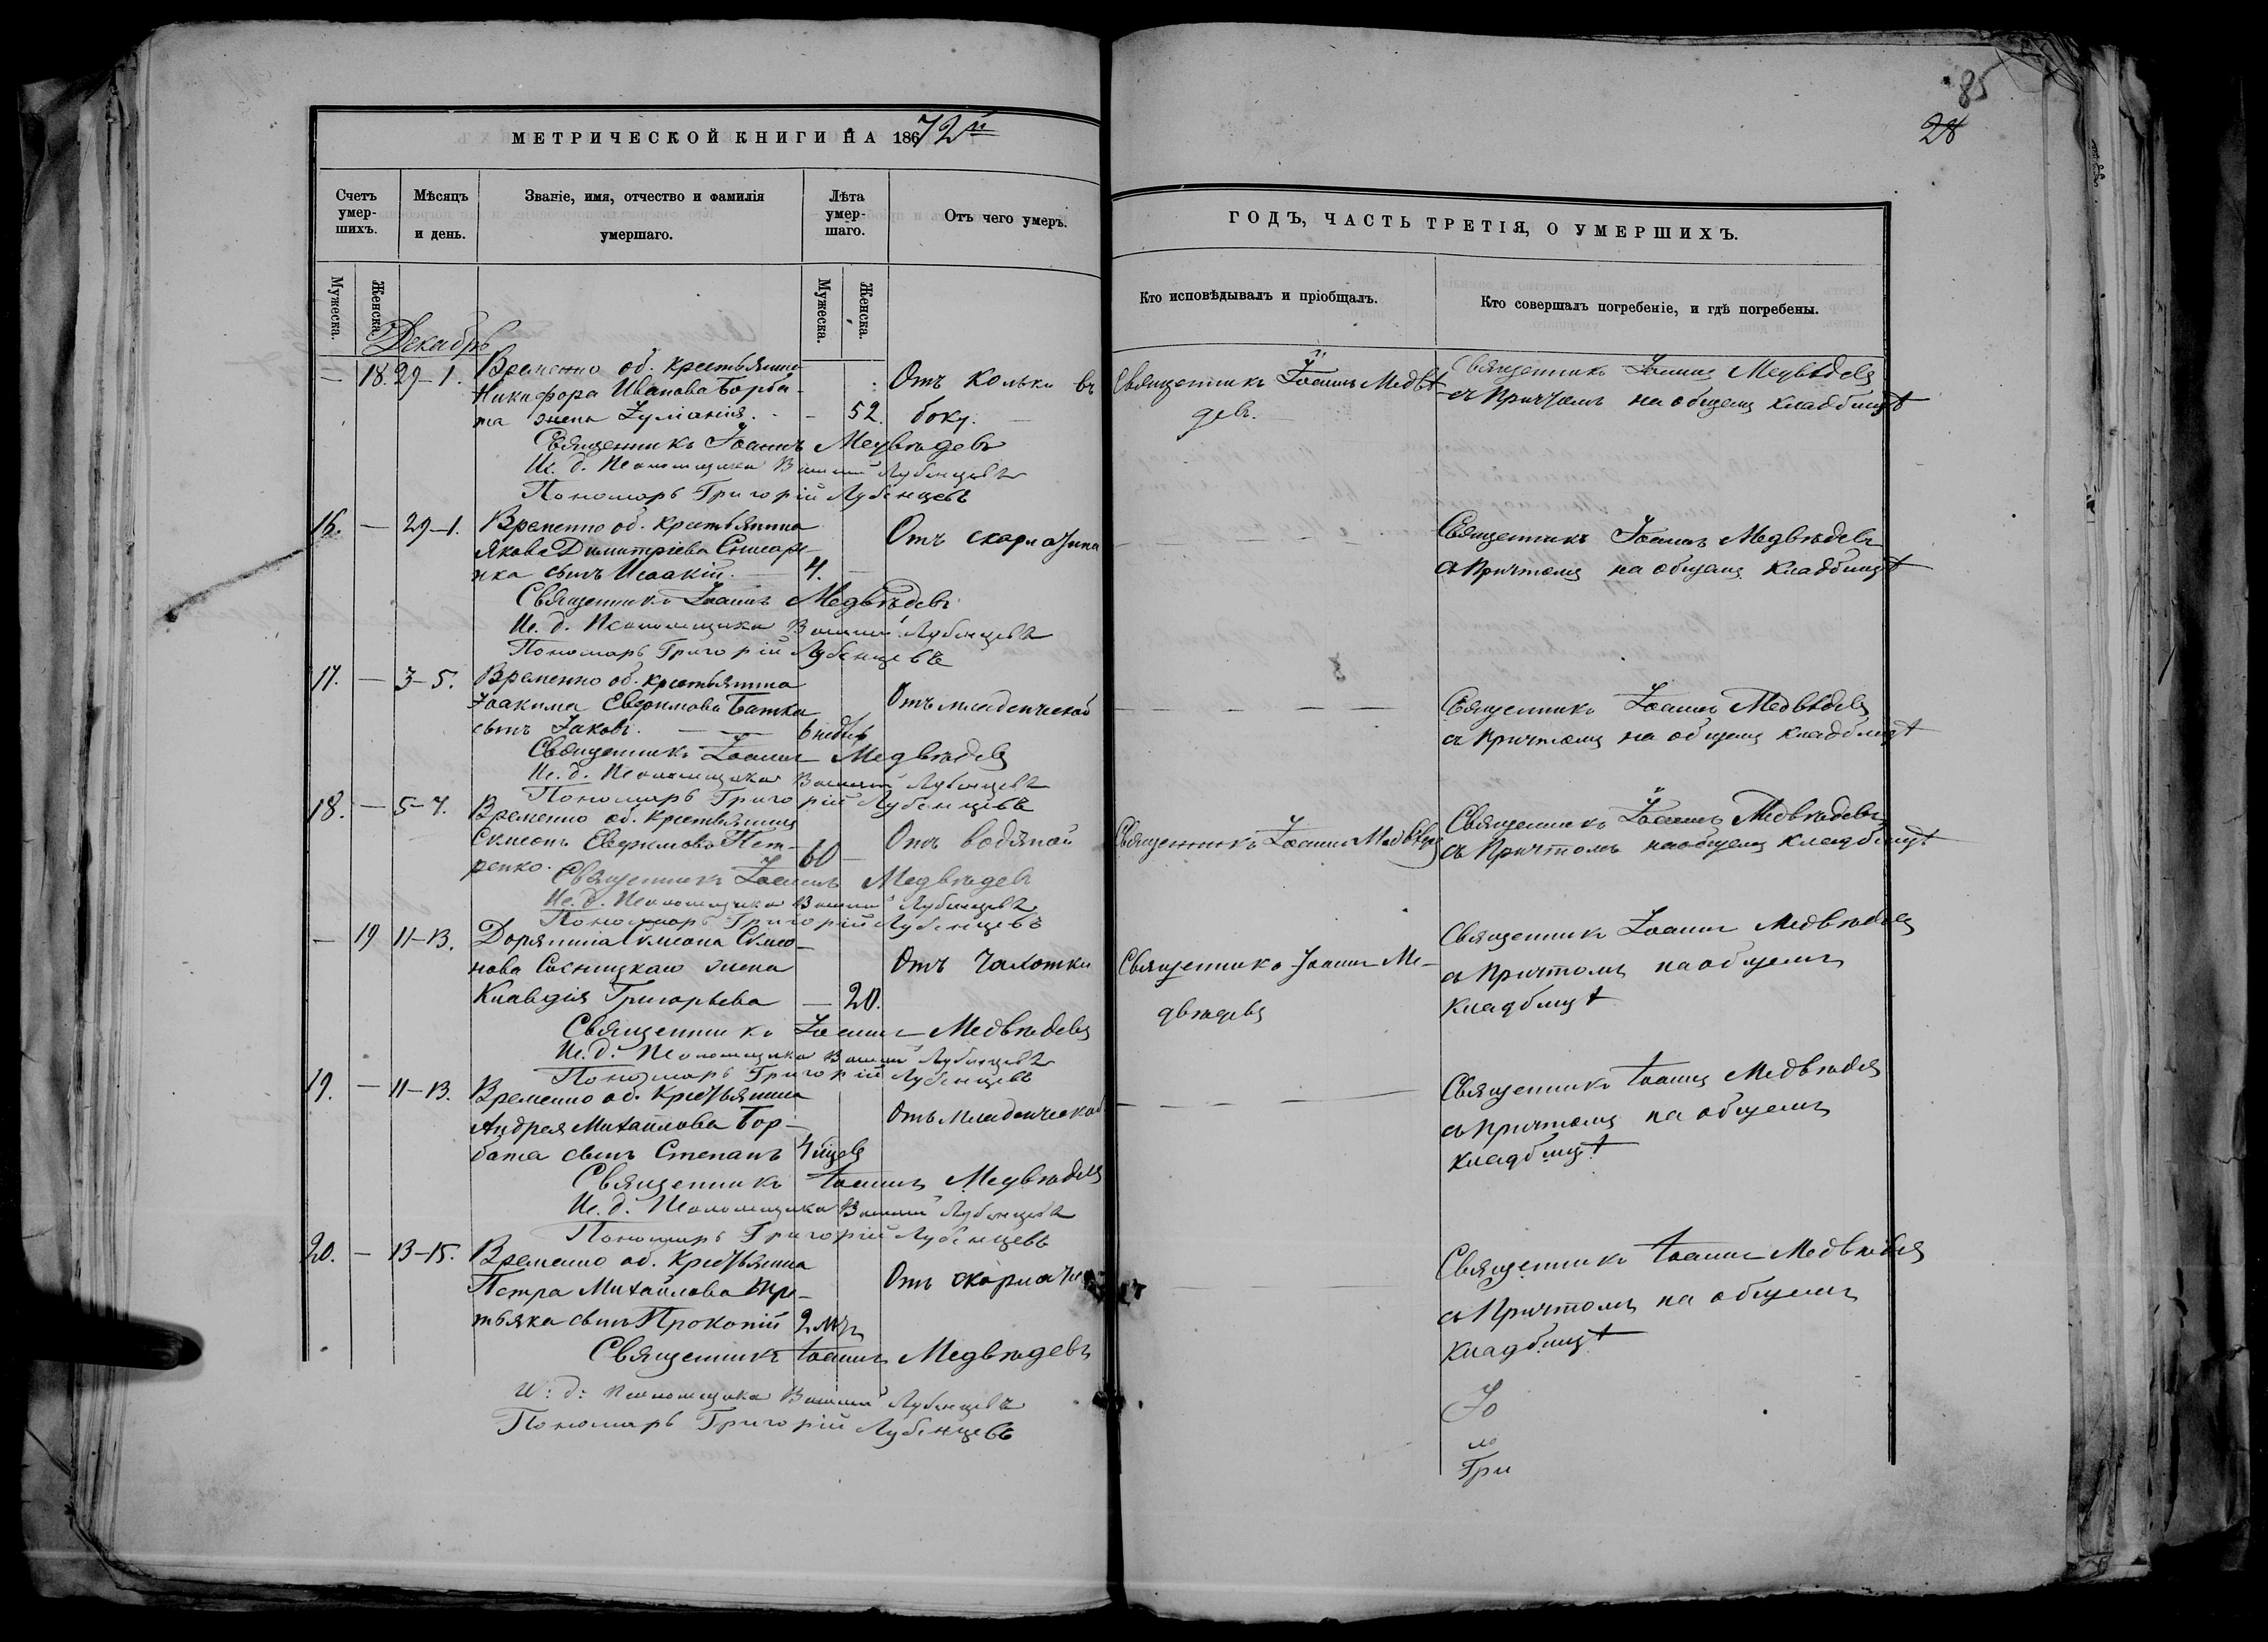 85
28
МЕТРИЧЕСКОЙ КНИГИ НА 1872й
ГОДЪ, ЧАСТЬ ТРЕТІЯ, О УМЕРШИХЪ.
Счетъ умер-шихъ.
Мѣсяцъ и день.
Званіе, имя, отчество и фамилія умершаго.
Лѣта умер-шаго.
Отъ чего умеръ.
Кто исповѣдывалъ и пріобщалъ.
Кто совершалъ погребеніе, и гдѣ погребены.
Мужеска.
Женска.
Мужеска.
Женска.
Декабрь
— 18. 29–1. Временно об. крестьянина Отъ кольки въ Священникъ Іоаннъ Медвѣ- Священникъ Іоаннъ Медвѣдевъ
Никифора Иванова Борба-
та жена Іуліанія. — 52. боку. девъ. съ Причтомъ на общемъ кладбищѣ
Священникъ Іоаннъ Медвѣдевъ
Ис. д. Псаломщика Лубенцевъ
Пономарь Григорій Лубенцевъ
16. — 29–1. Временно об. крестьянина Отъ скарлатины Священникъ Іоаннъ Медвѣдевъ
Якова Димитріева
нка сынъ Исаакій. 4. съ Причтомъ на общемъ кладбищѣ
Священникъ Іоаннъ Медвѣдевъ
Ис. д. Псаломщика Лубенцевъ
Пономарь Григорій Лубенцевъ
17. — 3–5. Временно об. крестьянина
Іоакима Евфимова Батка Отъ младенческой Священникъ Іоаннъ Медвѣдевъ
сынъ Іаковъ. 6 недѣль съ причтомъ на общемъ кладбищѣ
Священникъ Іоаннъ Медвѣдевъ
Ис. д. Псаломщика Лубенцевъ
Пономарь Григорій Лубенцевъ
18. — 5–7. Временно об. крестьянинъ
Симеонъ Евфимовъ Пет- Отъ водяной Священникъ Іоаннъ Медвѣдевъ Священникъ Іоаннъ Медвѣдевъ
ренко. 60 — съ Причтомъ на общемъ кладбищѣ
Священникъ Іоаннъ Медвѣдевъ
Ис. д. Псаломщика Лубенцевъ
Пономарь Григорій Лубенцевъ
— 19 11–13. Дворянина Симеона Симео- Священникъ Іоаннъ Медвѣдевъ
нова Сосницкаго жена Отъ чахотки Священникъ Іоаннъ Ме- съ Причтомъ на общемъ
Клавдія Григорьева — 20. двѣдевъ кладбищѣ
Священникъ Іоаннъ Медвѣдевъ
Ис. д. Псаломщика Лубенцевъ
Пономарь Григорій Лубенцевъ
19. — 11–13. Временно об. крестьянина Священникъ Іоаннъ Медвѣдевъ
Андрея Михайлова Бор- Отъ младенческой съ Причтомъ на общемъ
бата сынъ Степанъ 4 мѣся кладбищѣ
Священникъ Іоаннъ Медвѣдевъ
Ис. д. Псаломщика Лубенцевъ
Пономарь Григорій Лубенцевъ
20. — 13–15. Временно об. крестьянина Священникъ Іоаннъ Медвѣдевъ
Петра Михайлова Отъ скарлатины съ Причтомъ на общемъ
сынъ Прокопій 2 кладбищѣ
Священникъ Іоаннъ Медвѣдевъ
И. д. Псаломщика Лубенцевъ
Пономарь Григорій Лубенцевъ
Іо
Гри